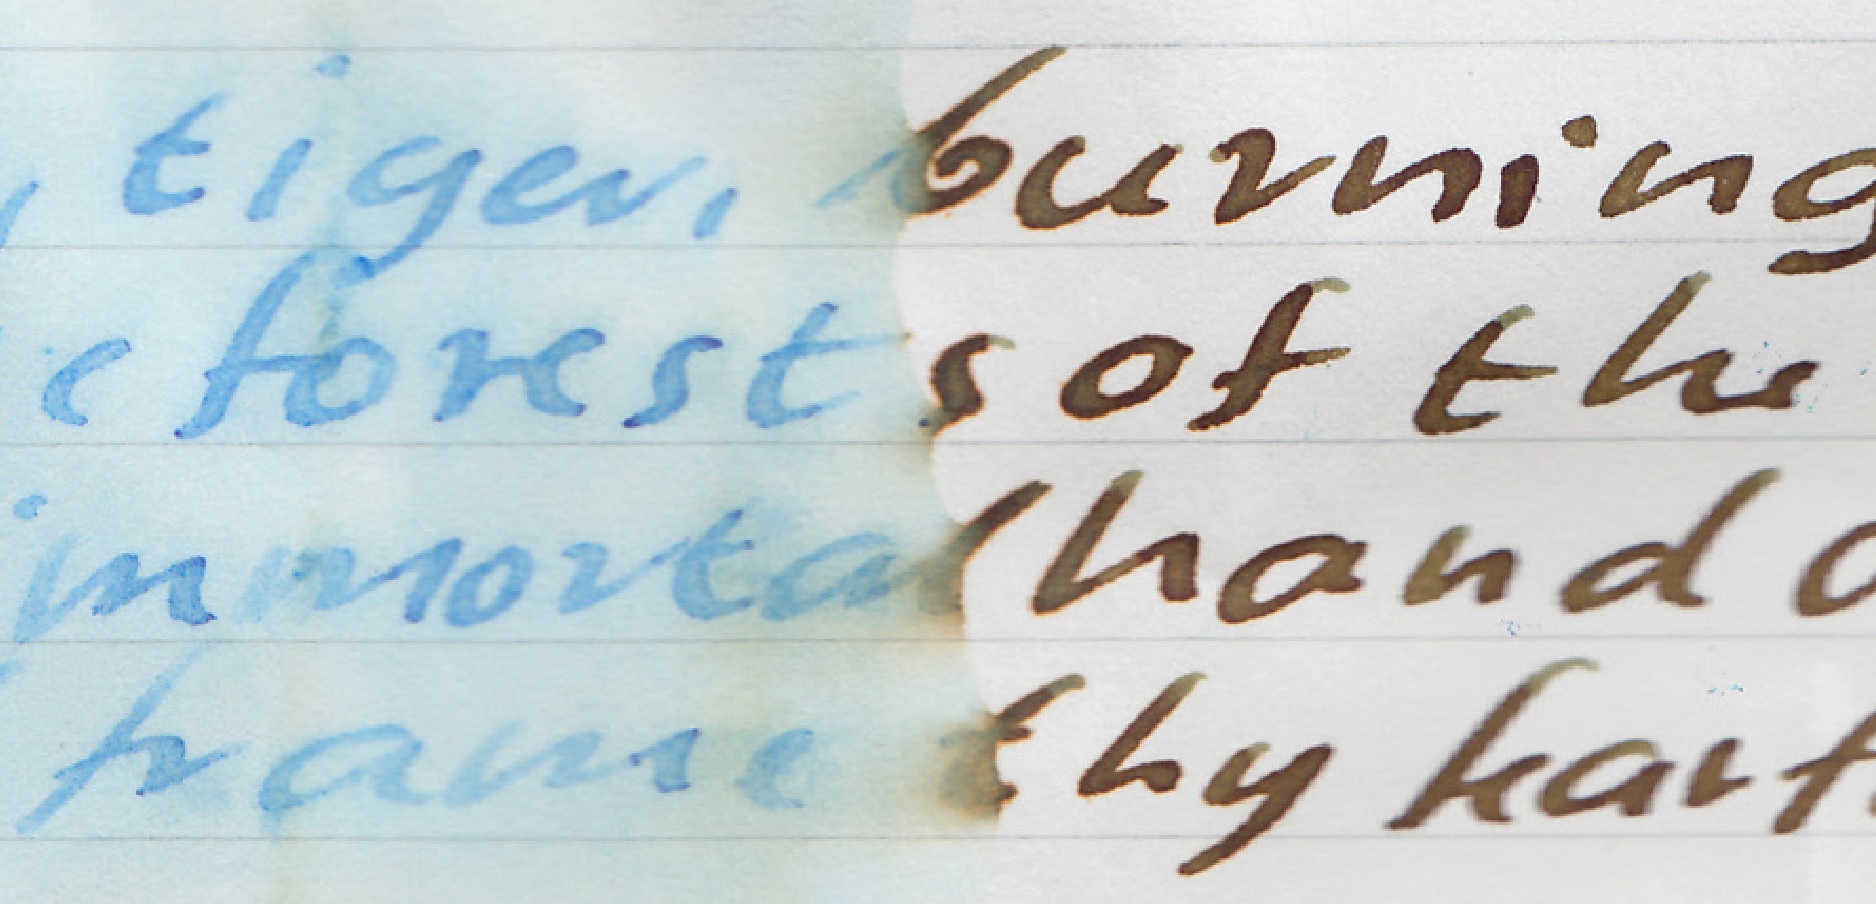 , tiger, burning
e forests of the
immortal hand o
frame thy fearf